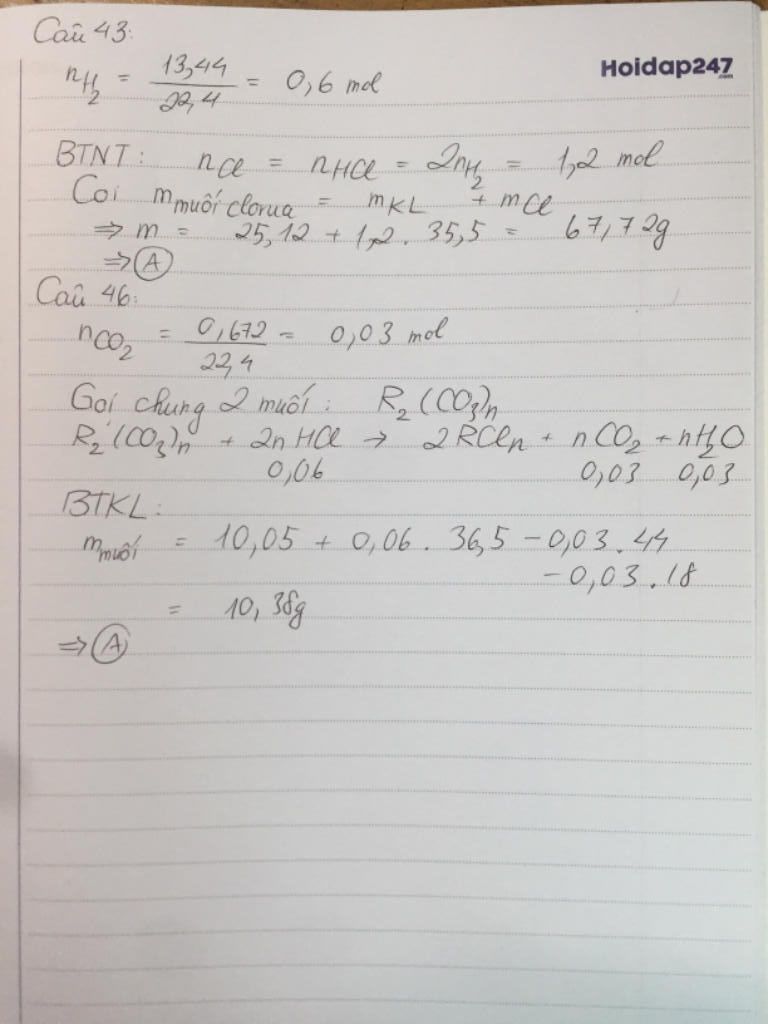 Câu 43:
Hoidap247.com
nH2 = 13,44/22,4 = 0,6 mol
BTNT: nCl = nHCl = 2nH2 = 1,2 mol
Coi m muối clorua = mKL + mCl
⇒ m = 25,12 + 1,2 . 35,5 = 67,72g
⇒ A
Câu 46:
nCO2 = 0,672/22,4 = 0,03 mol
Gọi chung 2 muối: R2(CO3)n
R2(CO3)n + 2nHCl → 2RCln + nCO2 + nH2O
0,06 0,03 0,03
BTKL:
m muối = 10,05 + 0,06 . 36,5 - 0,03 . 44
- 0,03 . 18
= 10,38g
⇒ A